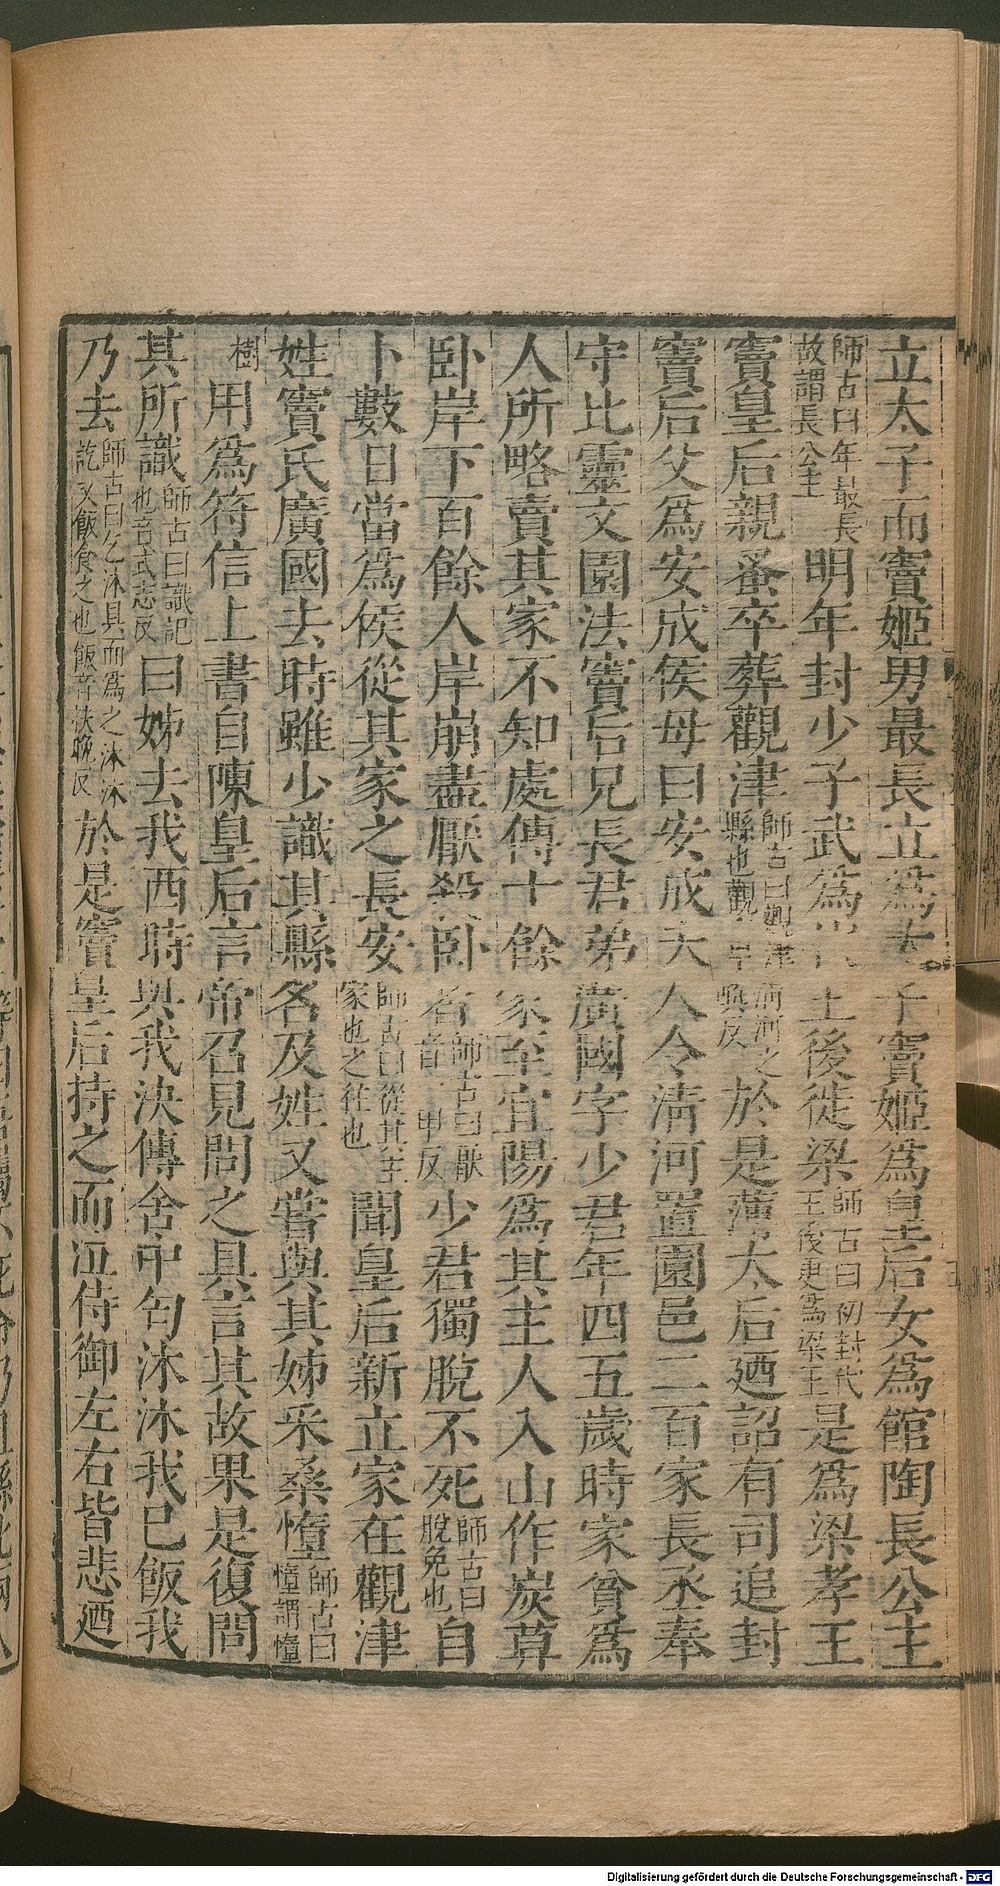 立太子而竇姬男最長立爲太子竇姬爲皇后女爲館陶長公主
師古曰年最長故謂長公主明年封少子武爲代王後徙梁師古曰初封代王後更爲梁王是爲梁孝王
竇皇后親蚤卒葬觀津師古曰觀津縣也觀音清河之興反於是薄太后廼詔有司追封
竇后父爲安成侯母曰安成夫人令淸河置園邑二百家長丞奉
守比靈文園法竇后兄長君弟廣國字少君年四五歲時家貧爲
人所略賣其家不知處傳十餘家至宜陽爲其主人入山作炭莫
卧岸下百餘人岸崩盡厭殺卧者師古曰厭音甲反少君獨脫不死師古曰脫免也自
卜數日當爲侯從其家之長安師古曰從其主家也之往也聞皇后新立家在觀津
姓竇氏廣國去時雖少識其縣名及姓又嘗與其姊采桑墮師古曰墮謂墮
樹用爲符信上書自陳皇后言帝召見問之具言其故果是復問
其所識師古曰識記也音式志反曰姊去我西時與我決傳舍中匄沐沐我已飯我
乃去師古曰乞沐具而爲之沐沐訖又飯食之也飯音扶晚反於是竇皇后持之而泣侍御左右皆悲廼
Digitalisierung gefördert durch die Deutsche Forschungsgemeinschaft - DFG